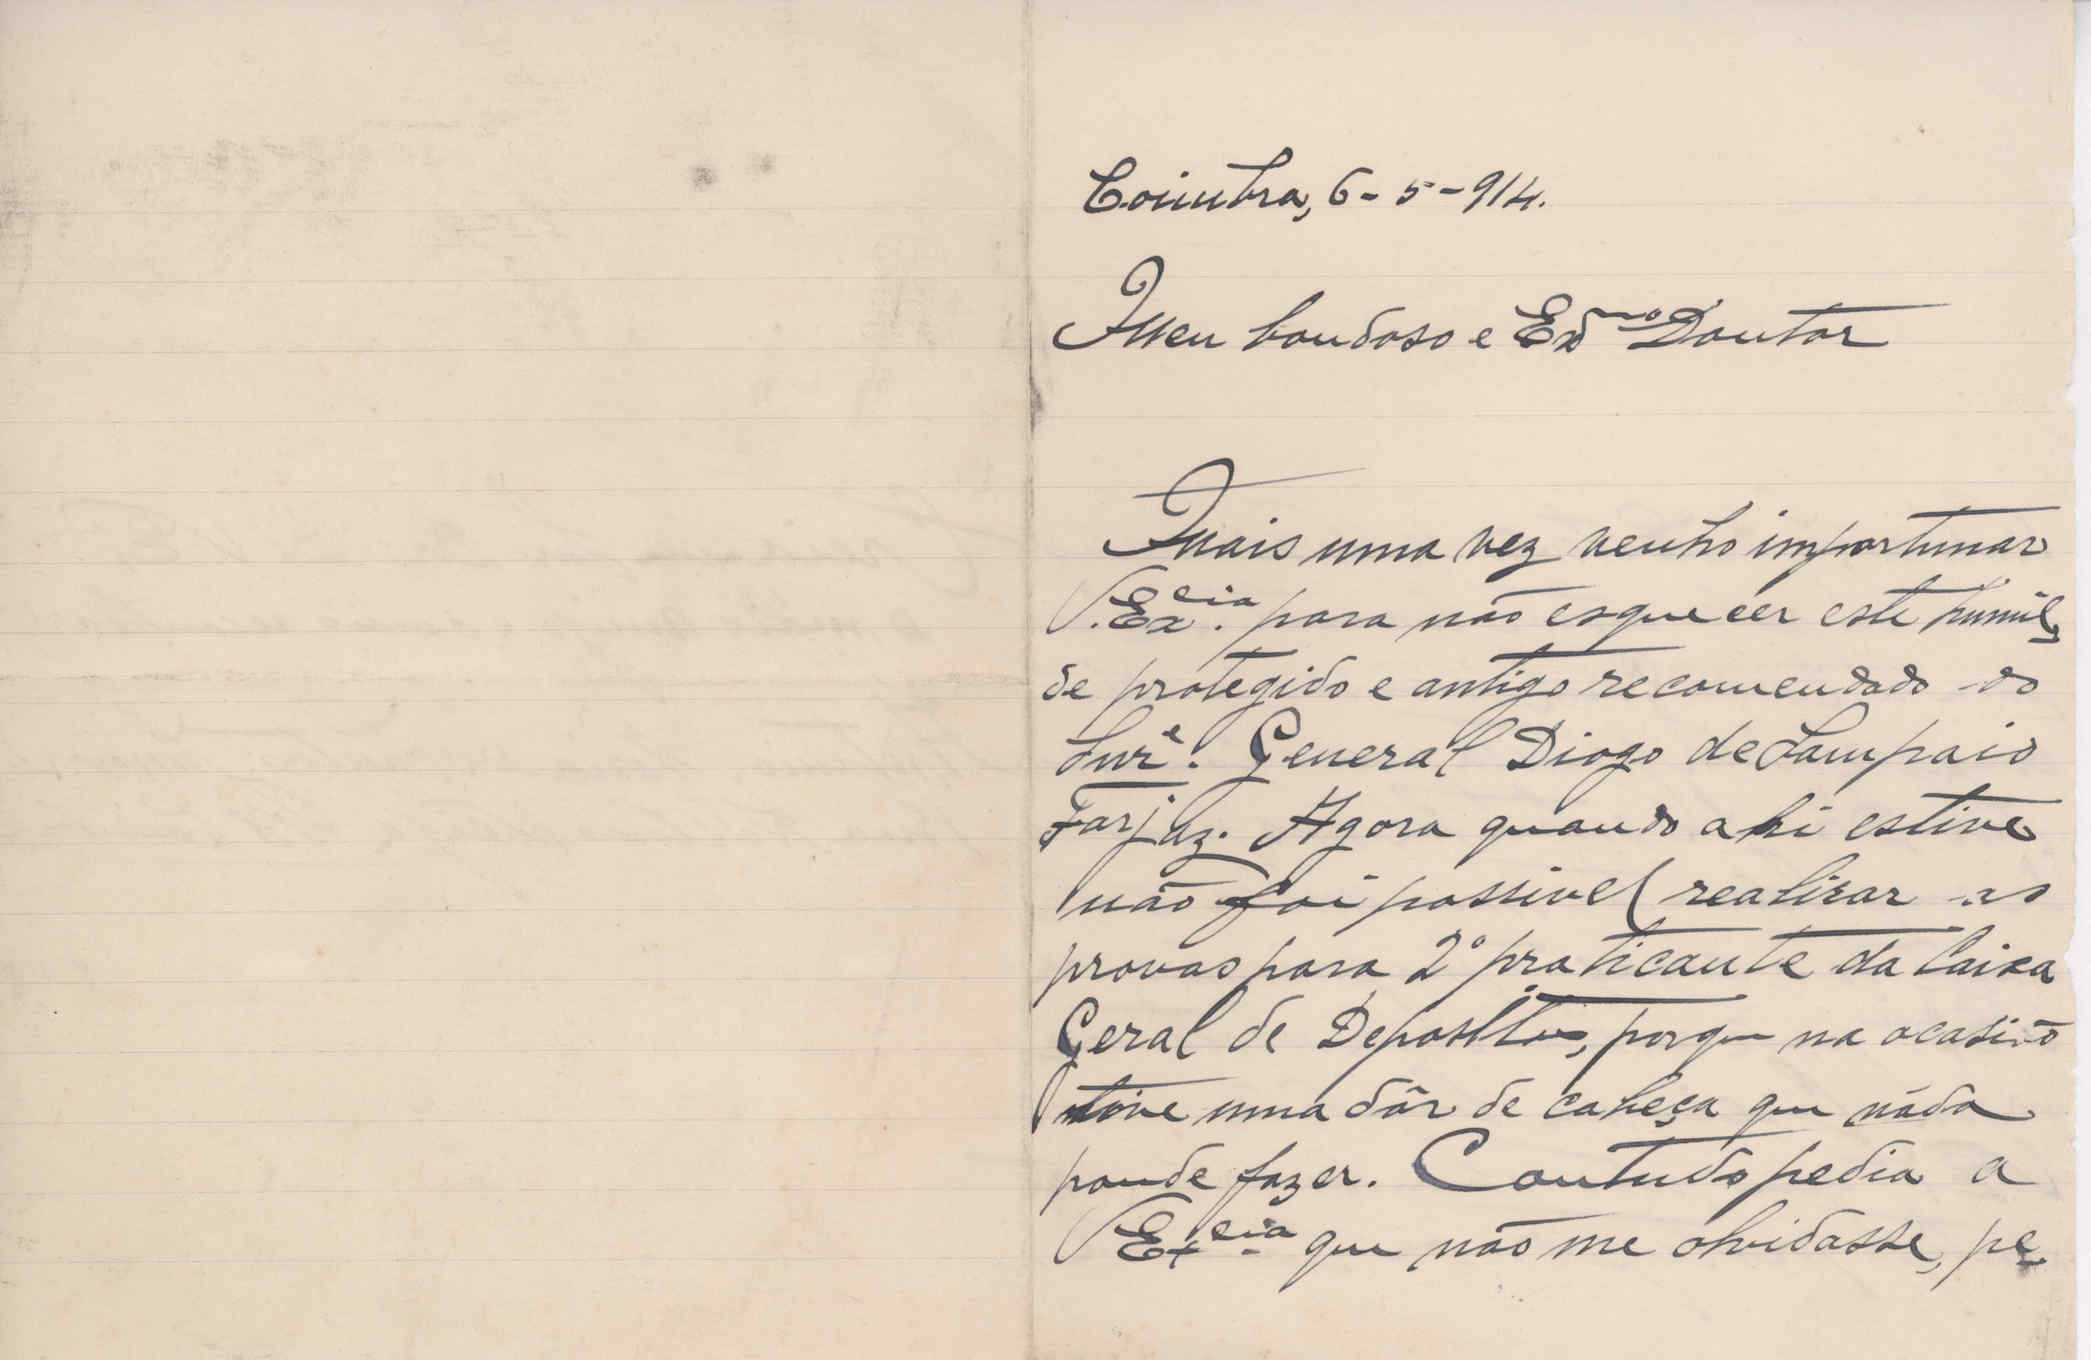 Coimbra, 6-5-914.
Meu bondoso e Exmo Doutor
Mais uma vez venho importunar
V. Excia. para não esquecer este humil-
de protegido e antigo recomendado do
Snre. General Diogo de Sampaio
Farjaz. Agora quando ahi estive
não foi possivel realizar as
provas para 2º praticante da Caixa
Geral de Depositos, porque na ocasião
tive uma dôr de cabeça que náda
poude fazer. Contudo pedia a
V Excia que não me olvidasse, pe-